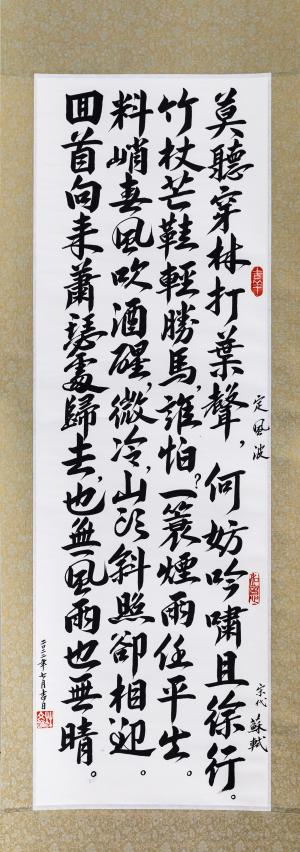 定風波
宋代 蘇軾
莫聽穿林打葉聲，何妨吟嘯且徐行。
竹杖芒鞋輕勝馬，誰怕？一簑煙雨任平生。
料峭春風吹酒醒，微冷，山頭斜照卻相迎。
回首向来蕭瑟處，歸去，也無風雨也無晴。
二〇二二年七月吉日